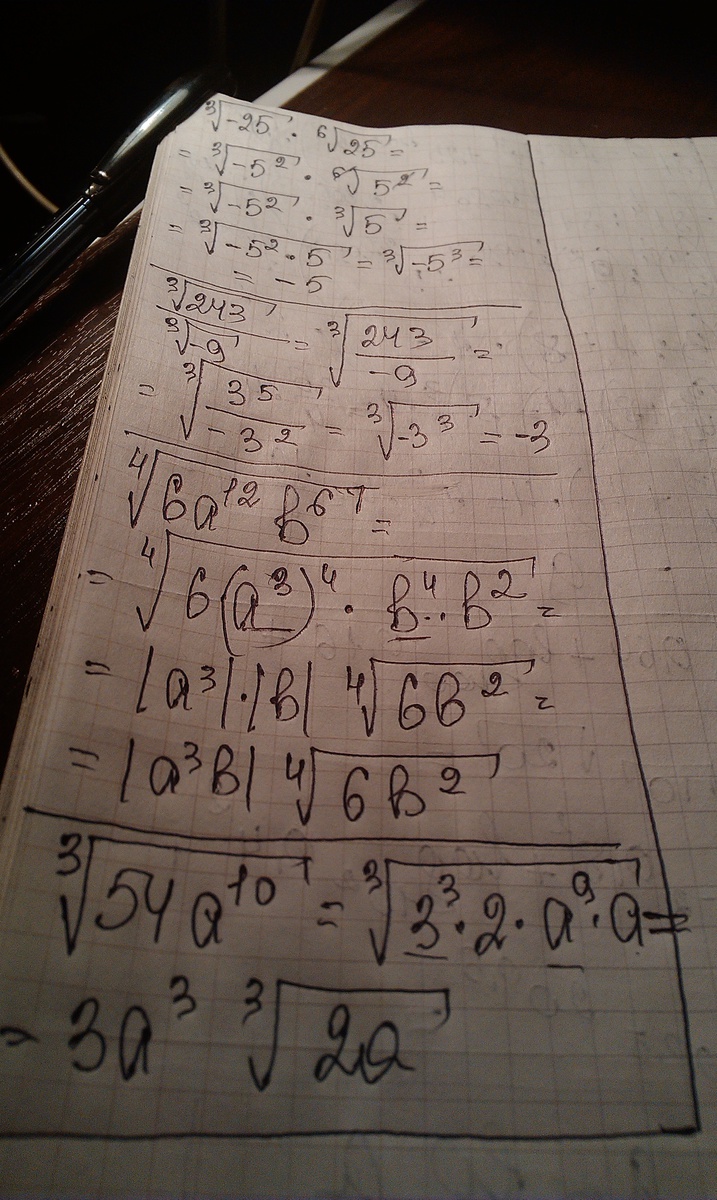 ∛-25 · ⁶√25 =
= ∛-5² · ⁶√5² =
= ∛-5² · ∛5 =
= ∛-5² · 5 = ∛-5³ =
= -5
∛243 / ∛-9 = ∛(243 / -9) =
= ∛(3⁵ / -3²) = ∛-3³ = -3
⁴√6a¹² b⁶ =
= ⁴√6(a³)⁴ · b⁴ · b² =
= |a³| · |b| ⁴√6b² =
= |a³b| ⁴√6b²
∛54a¹⁰ = ∛3³ · 2 · a⁹ · a =
= 3a³ ∛2a